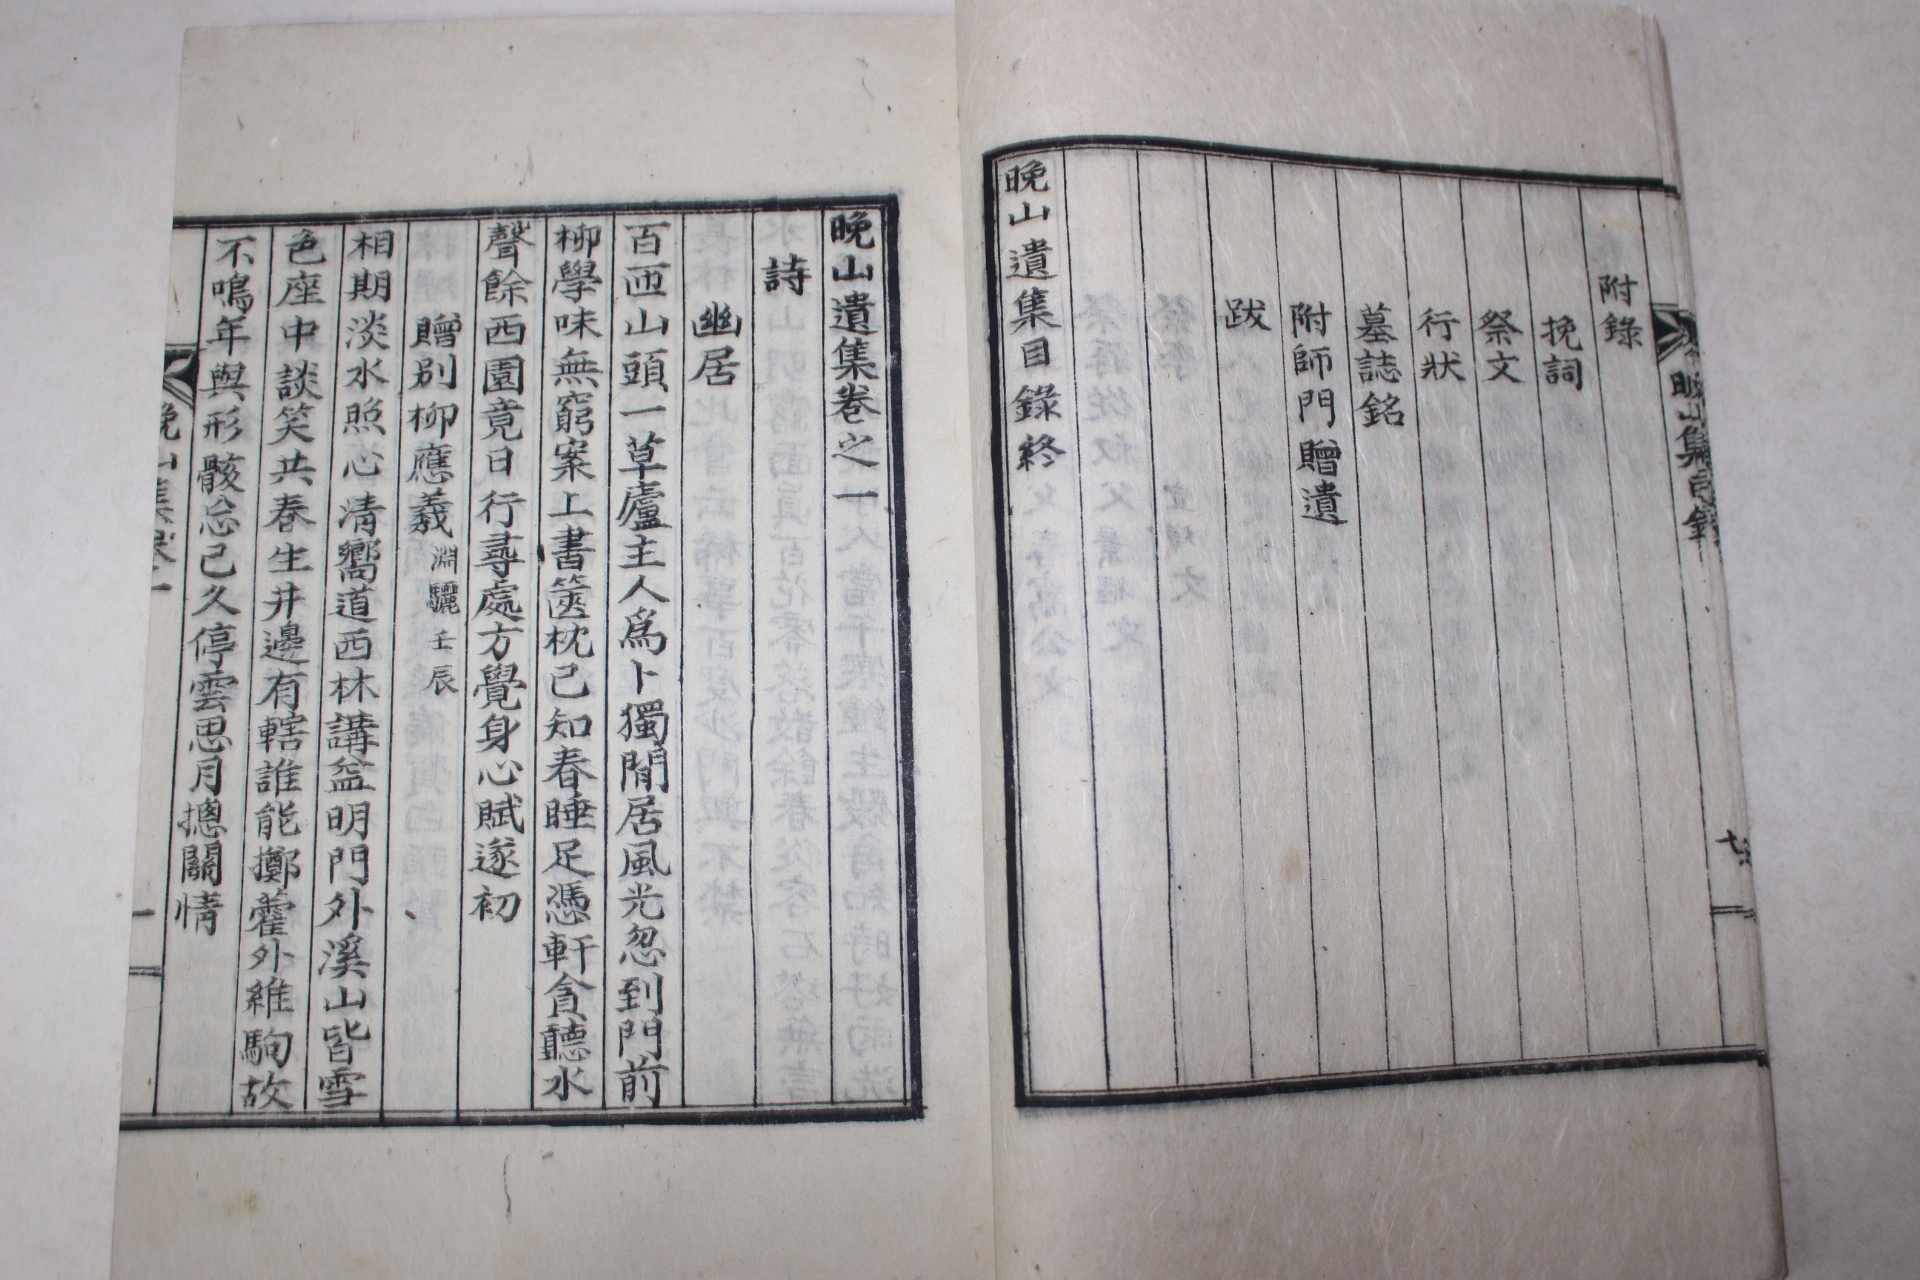 附錄
挽詞
祭文
行狀
墓誌銘
附師門贈遺
跋
晚山遺集目錄終
晚山集目錄
七
晚山遺集卷之一
詩
幽居
百匝山頭一草廬主人爲卜獨閒居風光忽到門前
柳學味無窮案上書篋枕已知春睡足憑軒貪聽水
聲餘西園竟日行尋處方覺身心賦遂初
贈別柳應羲淵驪壬辰
相期淡水照心淸嚮道西林講益明門外溪山皆雪
色座中談笑共春生井邊有轄誰能擲藿外維駒故
不鳴年與形骸忩已久停雲思月摠關情
晚山集卷一
一